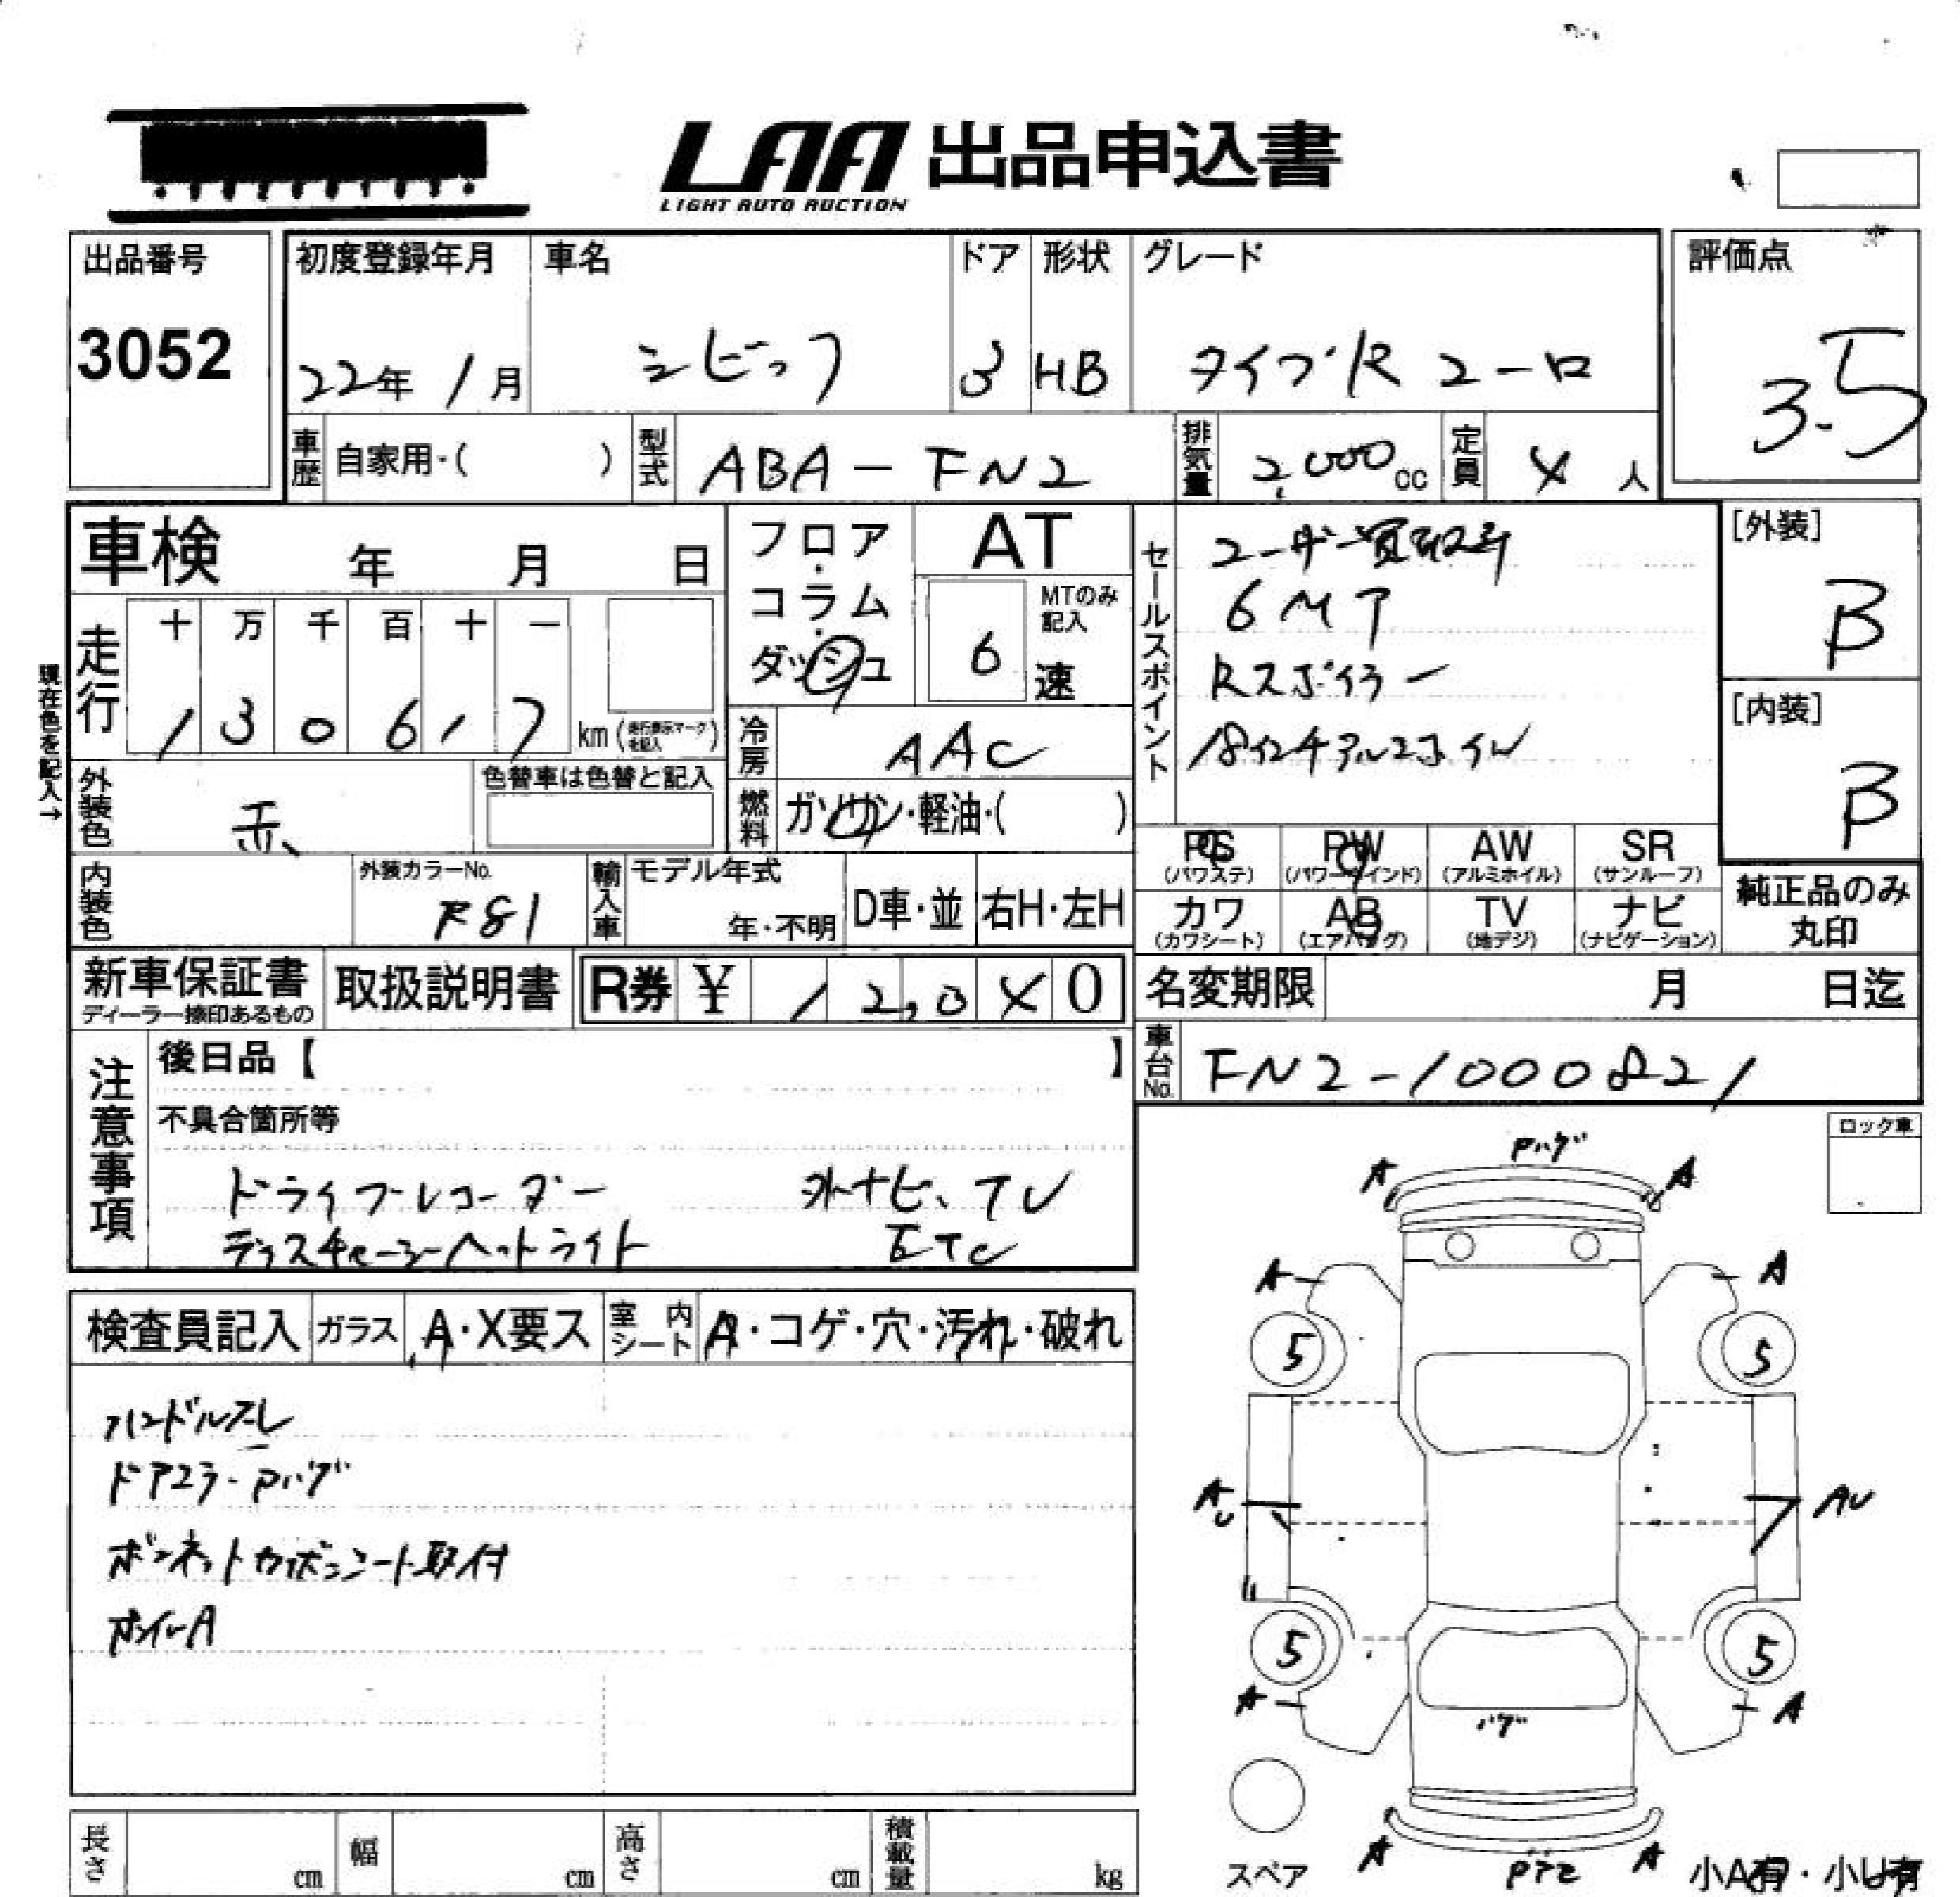 LAA 出品申込書
LIGHT AUTO AUCTION
出品番号
3052
初度登録年月
22年 1月
車名
シビック
ドア
3
形状
HB
グレード
タイプR ユーロ
評価点
3.5
車歴
自家用・( )
型式
ABA-FN2
排気量
2,000cc
定員
4人
車検 年 月 日
走行
十 万 千 百 十 一
1 3 0 6 1 7 km
(走行表示マークを記入)
現在色を記入→
フロア・コラム・ダッシュ
AT
MTのみ記入
6 速
冷房
AAC
燃料
ガソリン・軽油・( )
セールスポイント
ユーザー買取車
6MT
Rスポイラー
18インチアルミホイル
[外装]
B
[内装]
B
外装色
赤
色替車は色替と記入
内装色
外装カラーNo.
R81
輸入車
モデル年式
年・不明
D車・並
右H・左H
PS
(パワステ)
PW
(パワーウインド)
AW
(アルミホイル)
SR
(サンルーフ)
カワ
(カワシート)
AB
(エアバッグ)
TV
(地デジ)
ナビ
(ナビゲーション)
純正品のみ
丸印
新車保証書
ディーラー捺印あるもの
取扱説明書
R券 ¥ 12,040
名変期限 月 日迄
車台No.
FN2-1000821
注意事項
後日品【 】
不具合箇所等
ドライブレコーダー 外ナビ、TV
ディスチャージヘットライト ETC
ロック車
検査員記入
ガラス
A・X要ス
室内シート
A・コゲ・穴・汚れ・破れ
ハンドルスレ
ドアミラーPハゲ
ボンネットカーボンシート取付
ホイールA
Pハゲ
A A
A A
5 5
AU AU
5 5
A A
ハゲ
A A
スペア
小A有・小U有
長さ cm
幅 cm
高さ cm
積載量 kg